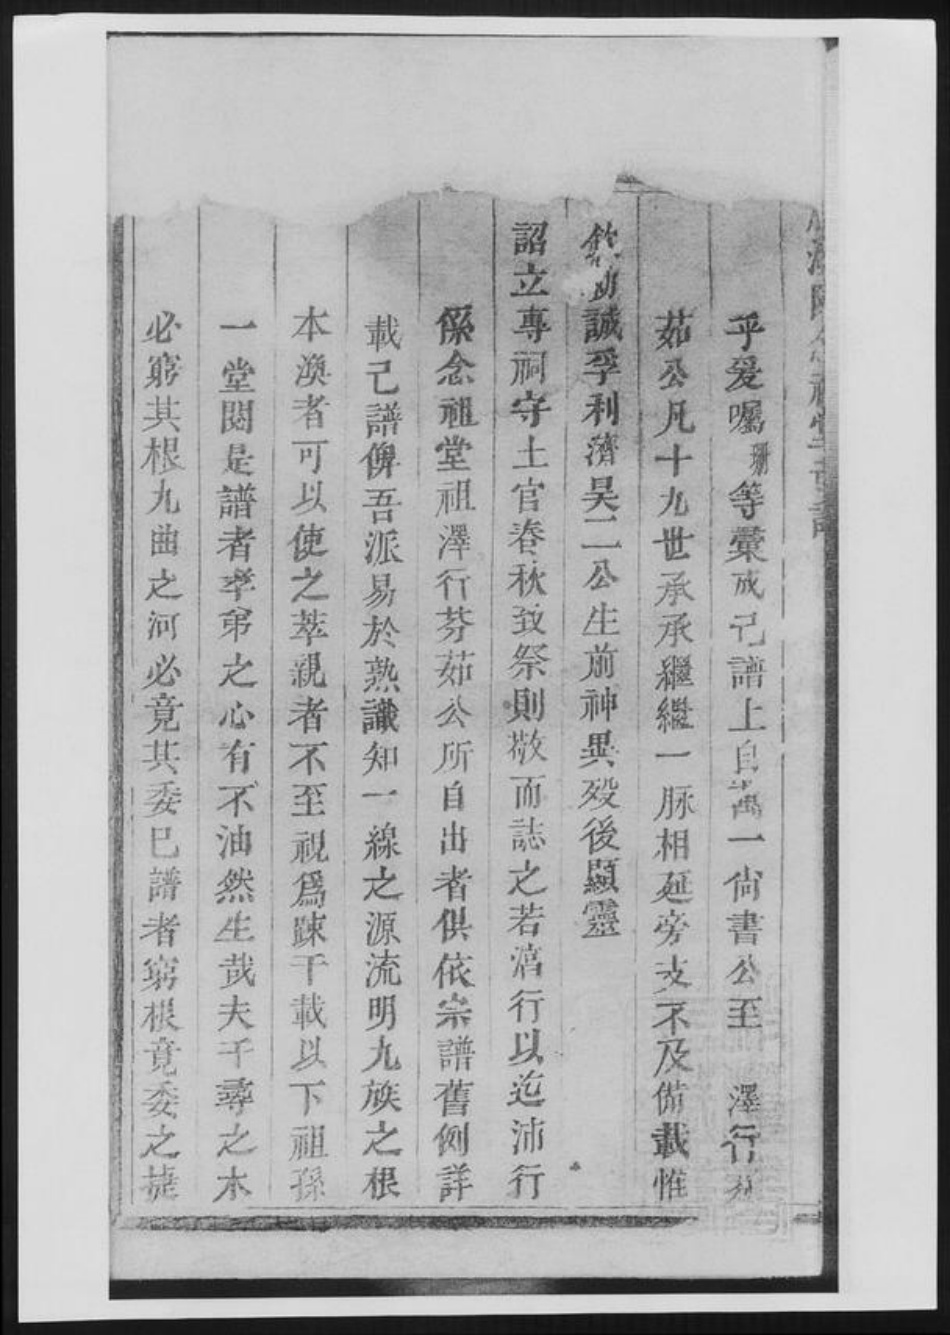 乎爰囑珊等彙成己譜上自萬一尙書公至 澤行芬
茹公凡十九世承承繼繼一脉相延旁支不及備載惟
欽勅誠孚利濟昊二公生前神異歿後顯靈
詔立專祠守土官春秋致祭則敬而誌之若㵍行以迄沛行
係念祖堂祖澤行芬茹公所自出者俱依宗譜舊例詳
載己譜俾吾派易於熟識知一線之源流明九族之根
本渙者可以使之萃親者不至視爲踈千載以下祖孫
一堂閱是譜者孝弟之心有不油然生哉夫千尋之木
必窮其根九曲之河必竟其委巳譜者窮根竟委之捷